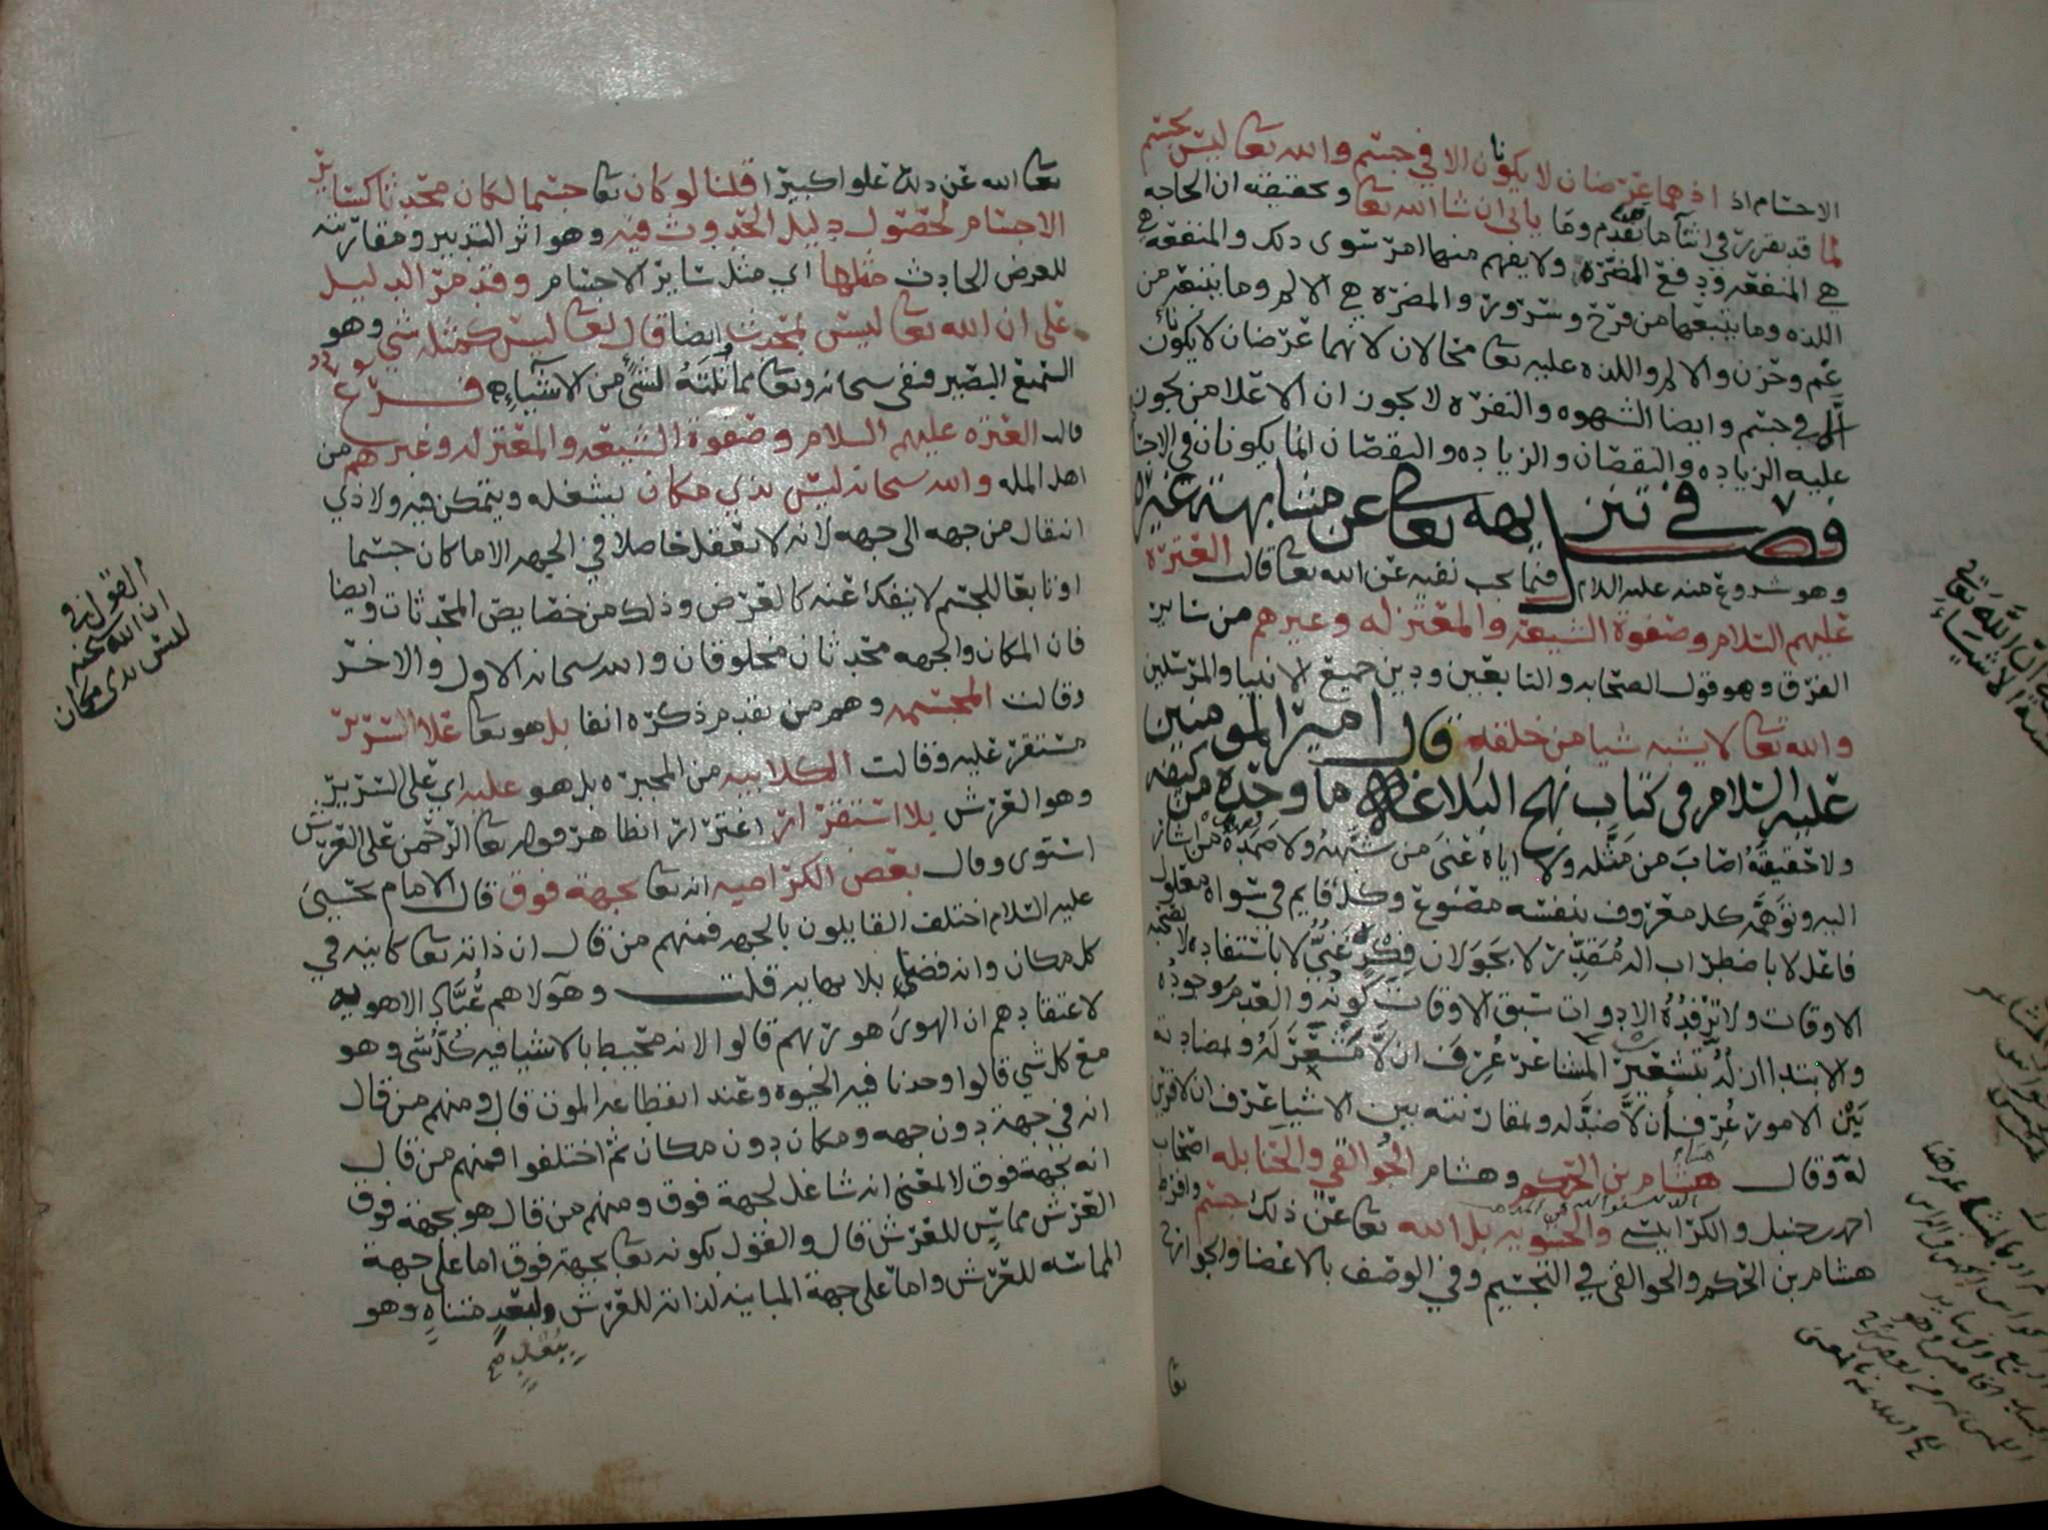 الاجسام اذ اذ هما عرضان لا يكونان الا في جسم والله تعا ليس بجسم
لما قد تقرر في اثنا ما تقدم وما ياتي ان شا الله تعا وتحقيقه ان الحاجه
هي المنفعه ودفع المضره ولا يفهم منها امر سوى ذلك والمنفعه هي
اللذه وما يتبعها من فرح وسرور والمضره هي الالم وما يتبعه من
غم وحزن والالم واللذه عليه تعا محالان لانهما عرضان لا يكونان
الا في جسم وايضا الشهوه والنفره لا يجوز ان الا على من يجوز
عليه الزياده والنقصان والزياده والنقصان انما يكونان في الاجسام
فصل في تنزيهه تعا عن مشابهة غيره
وهو شروع منه عليه السلام فيما يجب نفيه عن الله تعا قالت العترة
عليهم السلام وصفوة الشيعه والمعتزله وغيرهم من ساير
الفرق وهو قول الصحابه والتابعين ودين جميع الانبيا والمرسلين
والله تعا لا يشبه شيا من خلقه قال امير المومنين
عليه السلام في كتاب نهج البلاغه ما وحده من كيفه
ولا حقيقته اصاب من مثله ولا اياه عنى من شبهه ولا صمده من اشار
اليه وتوهمه كل معروف بنفسه مصنوع وكل قايم في سواه معلول
فاعل لا باضطراب اله مقدر لا بجولان فكره غني لا باستفاده لا تصحبه
الاوقات ولا ترفده الادوات سبق الاوقات كونه والعدم وجوده
والابتدا ازله بتشعيره المشاعر عرف ان لا مشعر له وبمضادته
بين الامور عرف ان لا ضد له وبمقارنته بين الاشيا عرف ان لا قرين
له وقال هشام بن الحكم وهشام الجوالقي والحنابله اصحاب
احمد بن حنبل والكرابيسي والحشويه بل الله تعا عن ذلك جسم وافرط
هشام بن الحكم والجوالقي في التجسيم وفي الوصف بالاعضا والجوارح
تعا
تعا الله عن ذلك علوا كبيرا قلنا لو كان تعا جسما لكان محدثا كساير
الاجسام لحصول دليل الحدوث فيه وهو اثر التدبير ومقارنته
للعرض الحادث مثلها اي مثل ساير الاجسام وقد مر الدليل
على ان الله تعا ليس بمحدث وايضا قال تعا ليس كمثله شي وهو
السميع البصير فنفى سبحانه وتعا مماثلته لشئ من الاشياء فرع
قالت العتره عليهم السلام وصفوة الشيعه والمعتزله وغيرهم من
اهل المله والله سبحانه ليس بذي مكان يشغله ويتمكن فيه ولا ذي
انتقال من جهه الى جهه لانه لا يعقل حاصلا في الجهه الا ما كان جسما
او تابعا للجسم لا ينفك عنه كالعرض وذلك من خصايص المحدثات وايضا
فان المكان والجهه محدثان مخلوقان والله سبحانه الاول والاخر
وقالت المجسمه وهم من تقدم ذكره انفا بل هو تعا على السرير
مستقر عليه وقالت الكلابيه من المجبره بل هو عليه اي على السرير
وهو العرش بلا استقرار اغترارا بظاهر قوله تعا الرحمن على العرش
استوى وقال بعض الكراميه انه تعا بجهة فوق قال الامام يحيى
عليه السلام اختلف القايلون بالجهه فمنهم من قال ان ذاته تعا كاينه في
كل مكان وانه فضي بلا نهايه قلت وهولاهم عُبَّاد الاهويه
لاعتقادهم ان الهوى هو ربهم قالوا لانه محيط بالاشيا فيه كل شي وهو
مع كل شي قالوا وجدنا فيه الحيوه وعند انقطاعه الموت قال ومنهم من قال
انه في جهة دون جهه ومكان دون مكان ثم اختلفوا فمنهم من قال
انه بجهة فوق لا لمعنى انه شاغل لجهة فوق ومنهم من قال هو بجهة فوق
العرش مماس للعرش قال والقول بكونه تعا بجهة فوق اما على جهة
المماسه للعرش واما على جهة المباينه لذاته للعرش ولبعد متناه وهو
ببعد صح
القول في
ان الله سبحنه
ليس بذي مكان